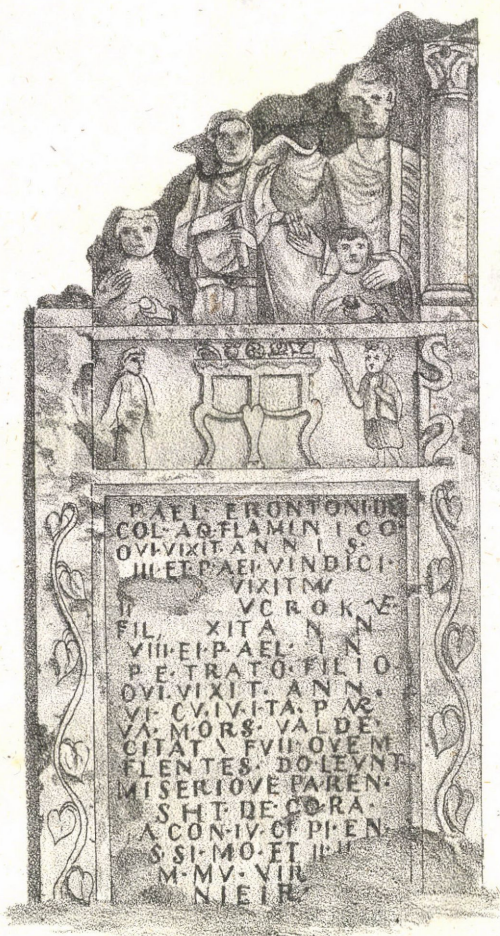 P·AEL· FRONTONI·DE
COL·AQ·FLAMINICO·
QVI·VIXIT·ANNIS·
III·ET·P·AEL·VINDICI·
VIXIT
II VCROK
FIL, XITAN N
VIII·EI·P·AEL· IN
PETRATO·FILIO·
OVI·VIXIT·ANN·
VI·CV·IV·ITA·PAR
VA·MORS·VALDE·
CITAT FVII·OVEM
FLENTES·DOLEVNT
MISERIOVE PAREN·
SHT·DECORA·
A CON·IV·CI·PI·EN
S·SI·MO·ET
M·MV·VIR
NIEIR